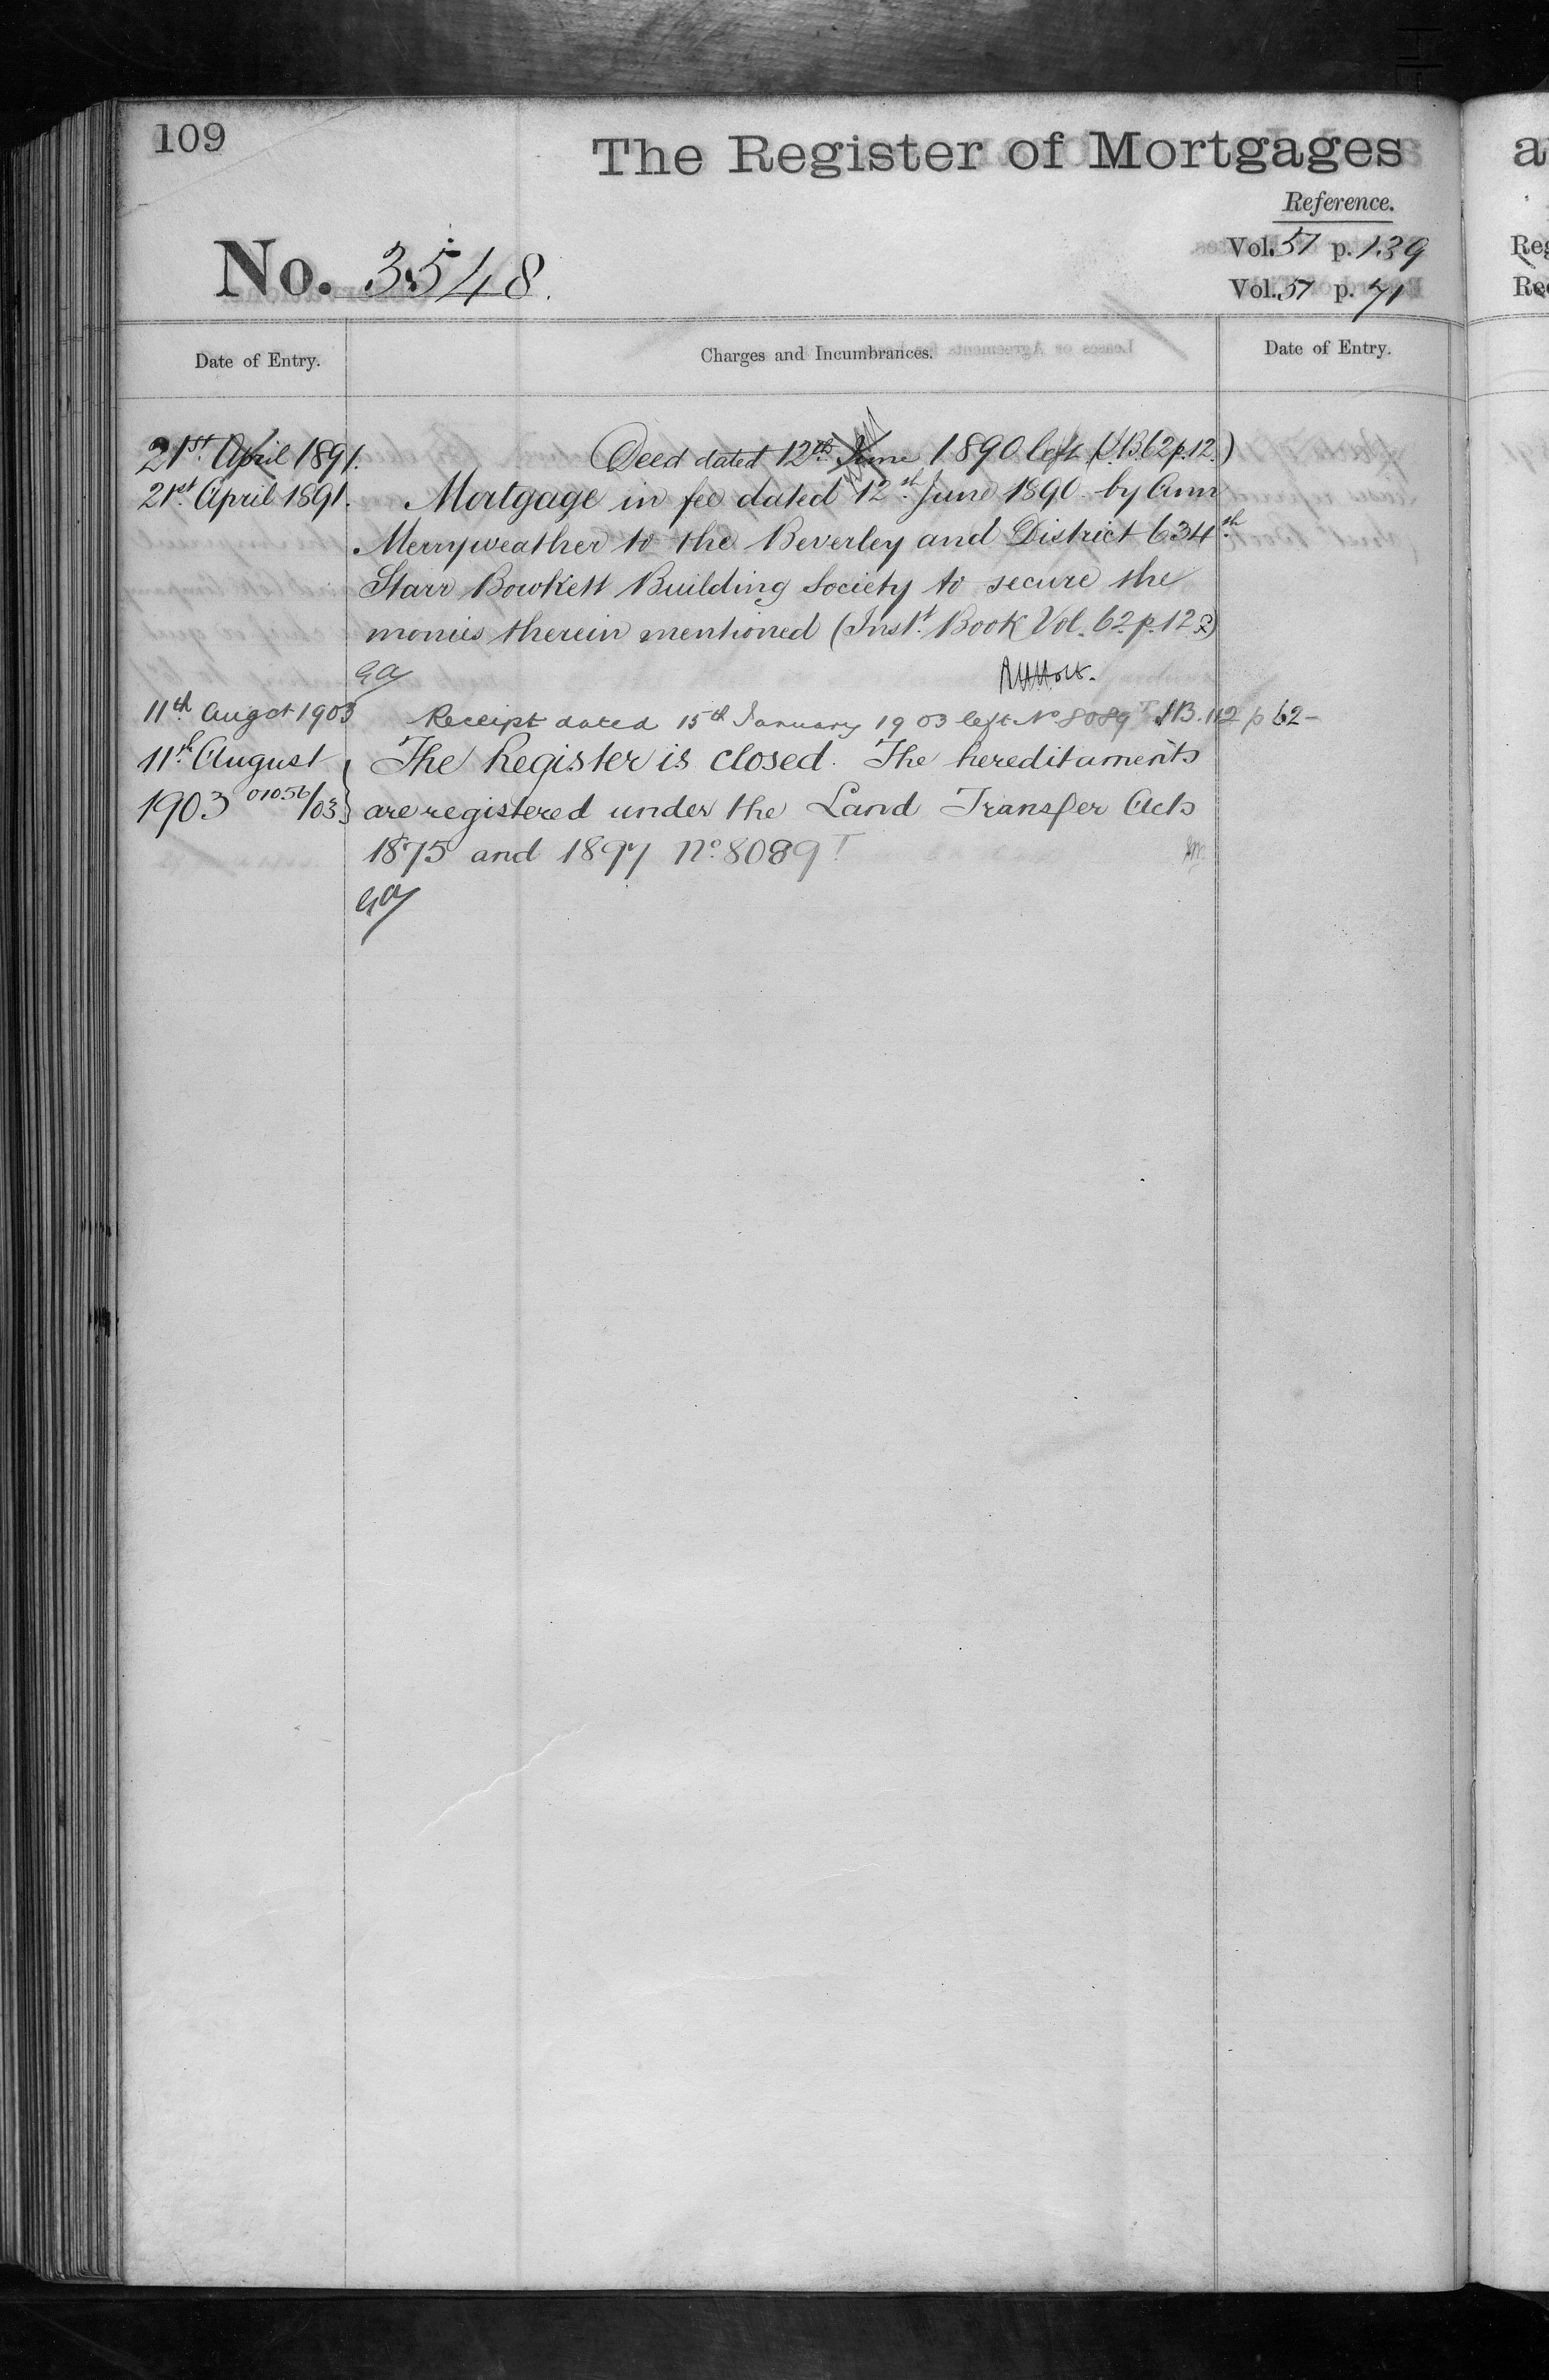 109
The Register of Mortgages
Reference.
Vol. 57 p. 139
Vol. 57 p. 71
No. 3548.
Date of Entry.
Charges and Incumbrances.
Date of Entry.
21st. April 1891. Deed dated 12th June 1890 left (I.B. 62 p. 12.)
21st. April 1891. Mortgage in fee dated 12th. June 1890 by Ann
Merryweather to the Beverley and District 634th.
Starr Bowkett Building Society to secure the
monies therein mentioned (Inst. Book Vol. 62. p. 12)
11th Augst 1903 Receipt dated 15th January 1903 left No 8089T IB. 112 p 62-
11th. August The Register is closed. The hereditaments
1903 01056/03 are registered under the Land Transfer Acts
1875 and 1897 No. 8089T
a
Reg
Rec